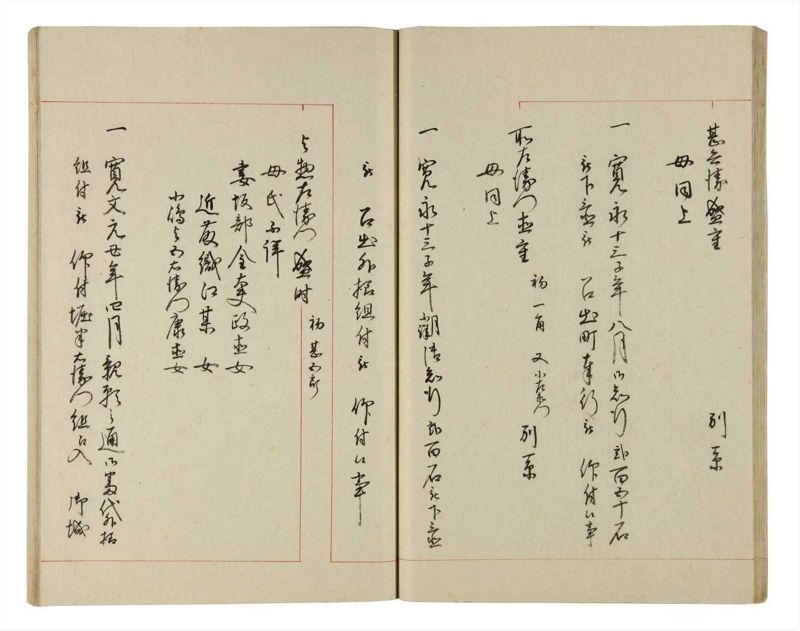 甚五兵衛盛重
別系
母同上
一 寛永十三子年八月御知行弐百五十石
被下置被 召出町奉行被 仰付候事
取左衛門直重 初一角 又小左衛門 別系
母同上
一 寛永十三子年 御知行弐百石被下置
被 召出外招組付被 仰付候事
与惣左衛門盛時 初甚五郎
母氏不詳
妻坂部金太夫政直女
近藤織江某女
小嶋与五右衛門康直女
一 寛文元丑年四月親願之通御番代外招
組付被 仰付堀半右衛門組江入 御城